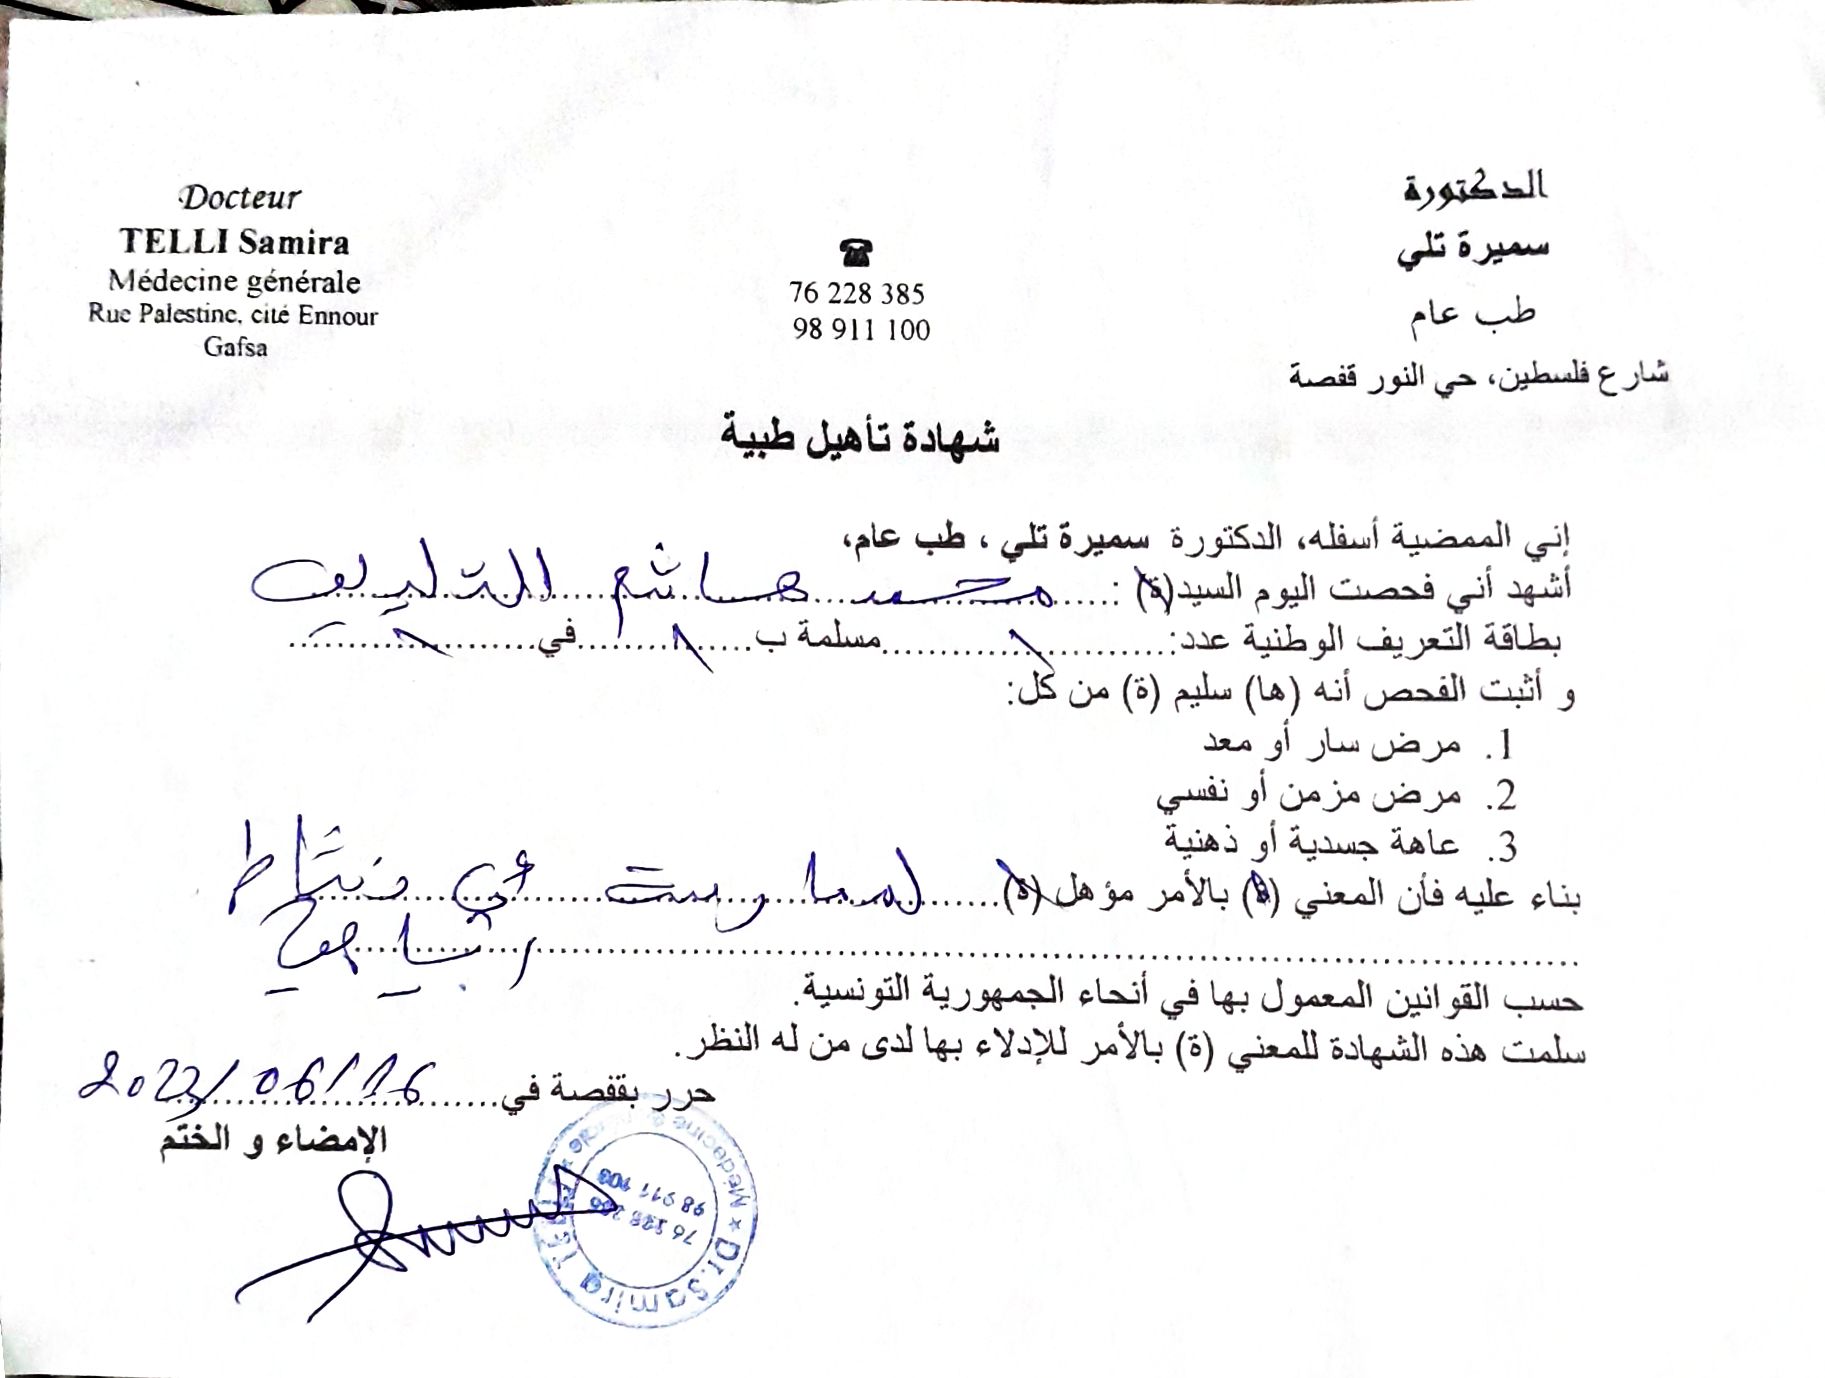 Docteur
TELLI Samira
Médecine générale
Rue Palestine, cité Ennour
Gafsa
☎
76 228 385
98 911 100
الدكتورة
سميرة تلي
طب عام
شارع فلسطين، حي النور قفصة
شهادة تأهيل طبية
إني الممضية أسفله، الدكتورة سميرة تلي ، طب عام،
أشهد أني فحصت اليوم السيد(ة) : محمد هاشم التليلي
بطاقة التعريف الوطنية عدد: ........ مسلمة ب ........ في ........
و أثبت الفحص أنه (ها) سليم (ة) من كل:
1. مرض سار أو معد
2. مرض مزمن أو نفسي
3. عاهة جسدية أو ذهنية
بناء عليه فأن المعني (ة) بالأمر مؤهل (ة) لممارسة أي نشاط
رياضي
حسب القوانين المعمول بها في أنحاء الجمهورية التونسية.
سلمت هذه الشهادة للمعني (ة) بالأمر للإدلاء بها لدى من له النظر.
حرر بقفصة في 2023/06/16
الإمضاء و الختم
Dr. Samira TELLI * Médecine Générale *
76 228 385
98 911 100